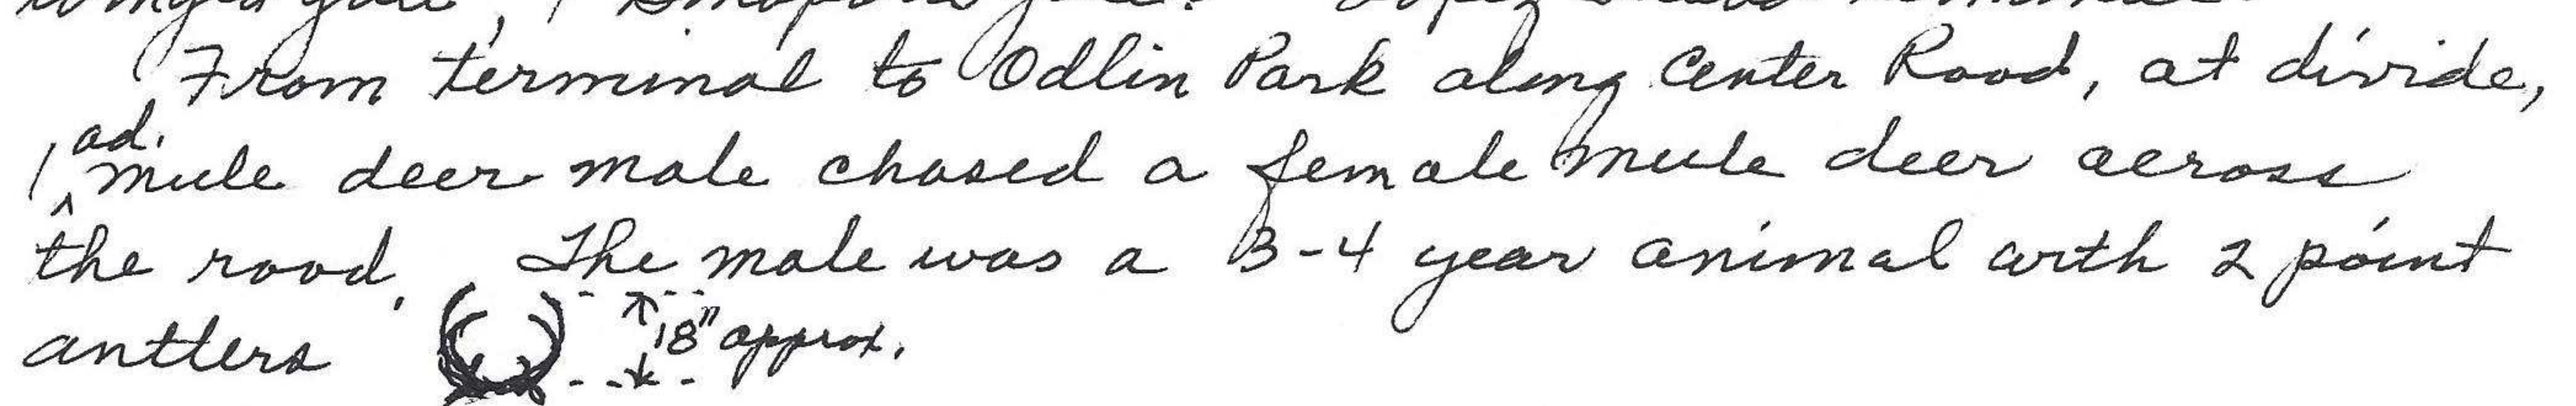 From terminal to Odlin Park along Center Road, at divide,
1 ad. mule deer male chased a female mule deer across
the road. The male was a 3-4 year animal with 2 point
antlers 18" approx.